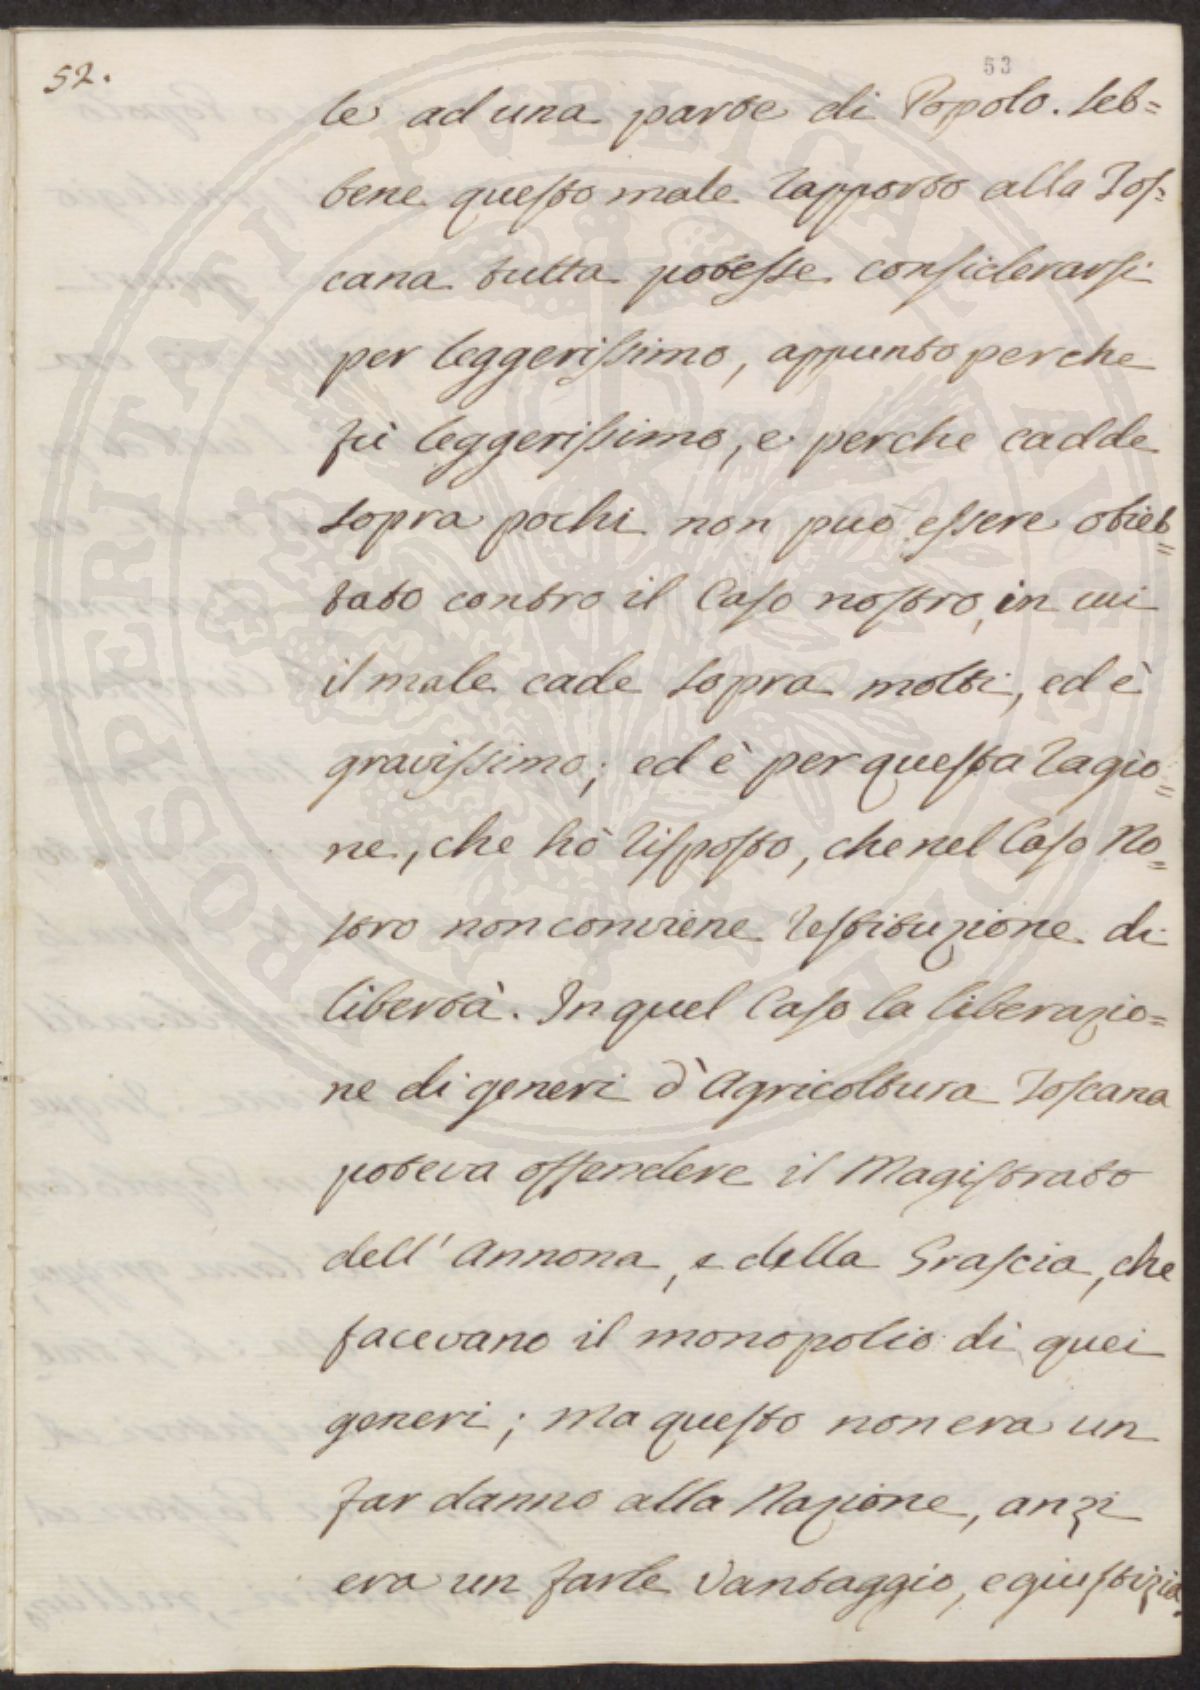 52.
53
le ad una parte di Popolo. Seb=
bene questo male rapporto alla Tos=
cana tutta potesse considerarsi
per leggerissimo, appunto perche
fù leggerissimo, e perche cadde
sopra pochi non può essere obiet=
tato contro il Caso nostro, in cui
il male cade sopra molti, ed è
gravissimo; ed è per questa ragio=
ne, che hò risposto, che nel Caso No=
stro non conviene restituzione di
libertà. In quel Caso la liberazio=
ne di generi d'Agricoltura Toscana
poteva offendere il Magistrato
dell'Annona, e della Grascia, che
facevano il monopolio di quei
generi; ma questo non era un
far danno alla Nazione, anzi
era un farle vantaggio, e giustizia.
PROSPERITATI PVBLICAE AVGENDAE